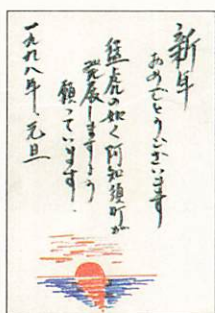 新年
あめでとうございます
猛虎の如く阿知須町が
発展しますよう
願っています。
一九九八年 元旦